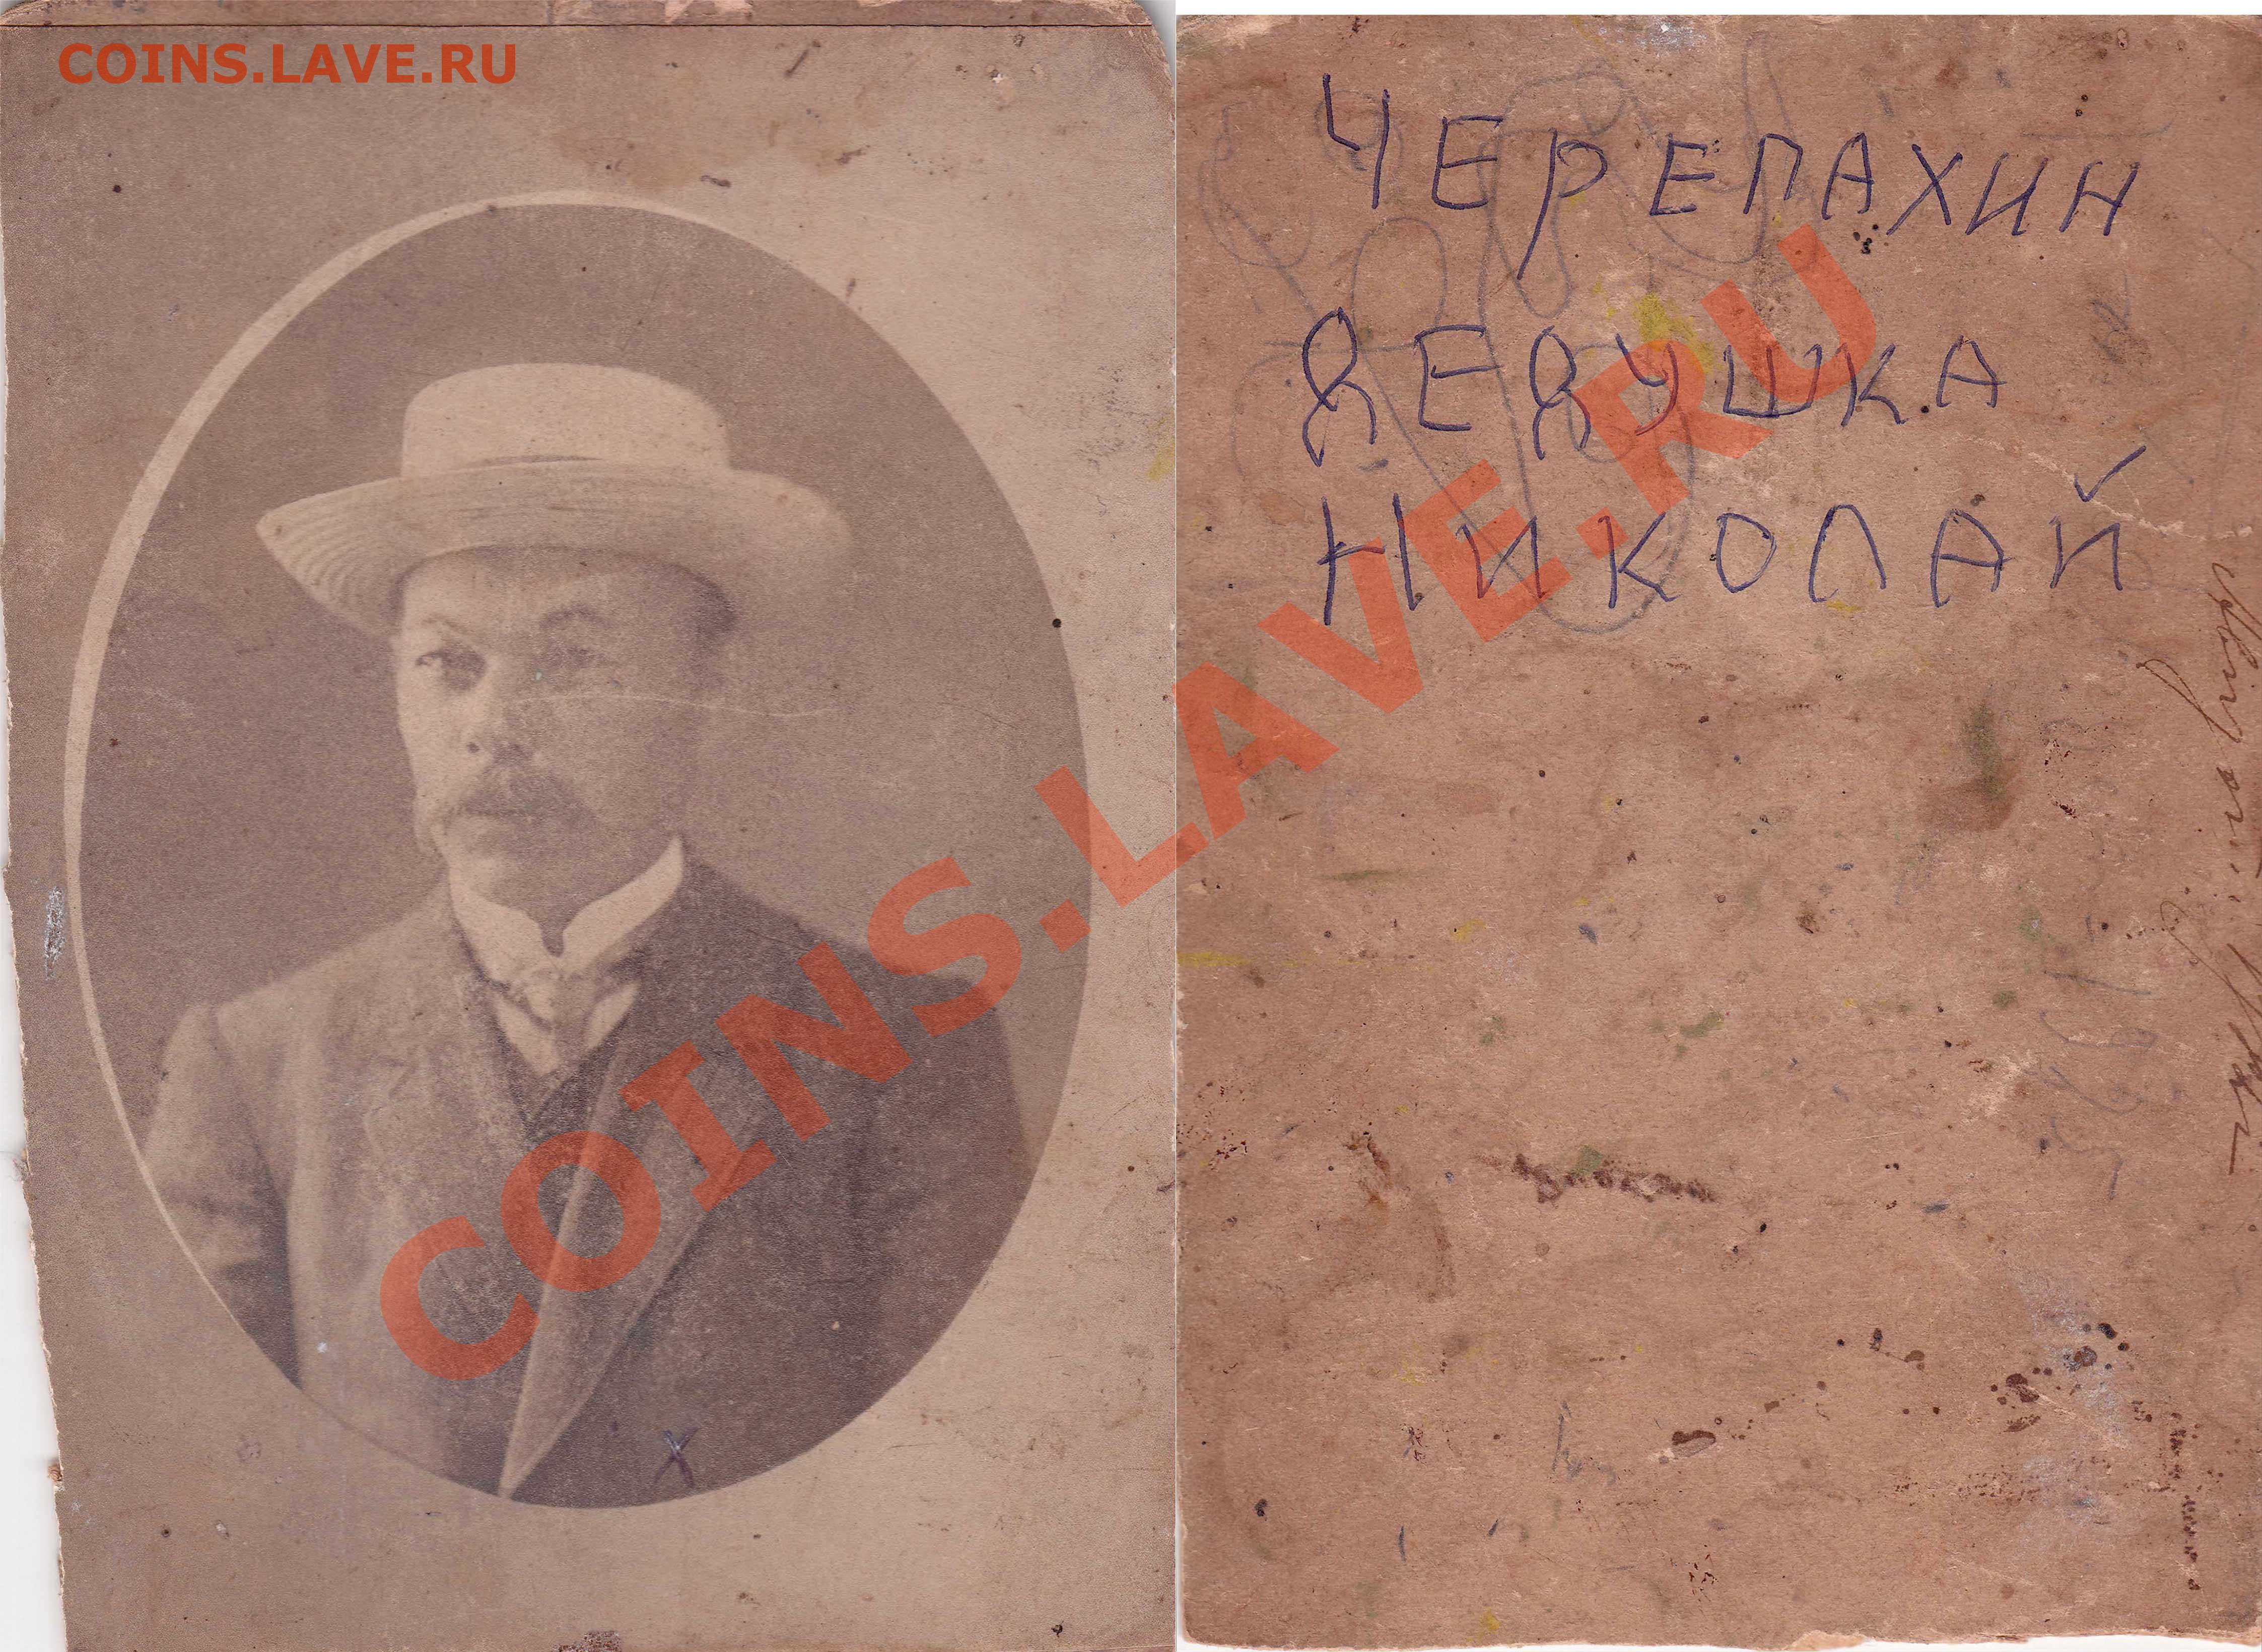 COINS.LAVE.RU
ЧЕРЕПАХИН
ДЕДУШКА
НИКОЛАЙ
COINS.LAVE.RU